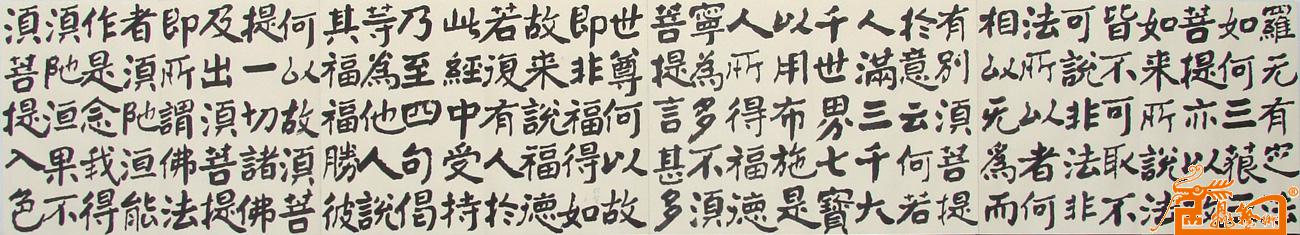 羅无有定法
如何三藐
菩提亦以故
如來所說法
皆不可取不
可說非法非
法所以者何
相以无為而
有別須菩提
於意云何若
人滿三千大
千世界七寶
以用布施是
人所得福德
寧為多不須
菩提言甚多
世尊何以故
即非福得如
故來說福德
若復有人於
此經中受持
乃至四句偈
等為他人說
其福福勝彼
何以故須菩
提一切諸佛
及出須菩提
即所謂佛法
者須陀洹能
作是念我得
須陀洹果不
須菩提入色